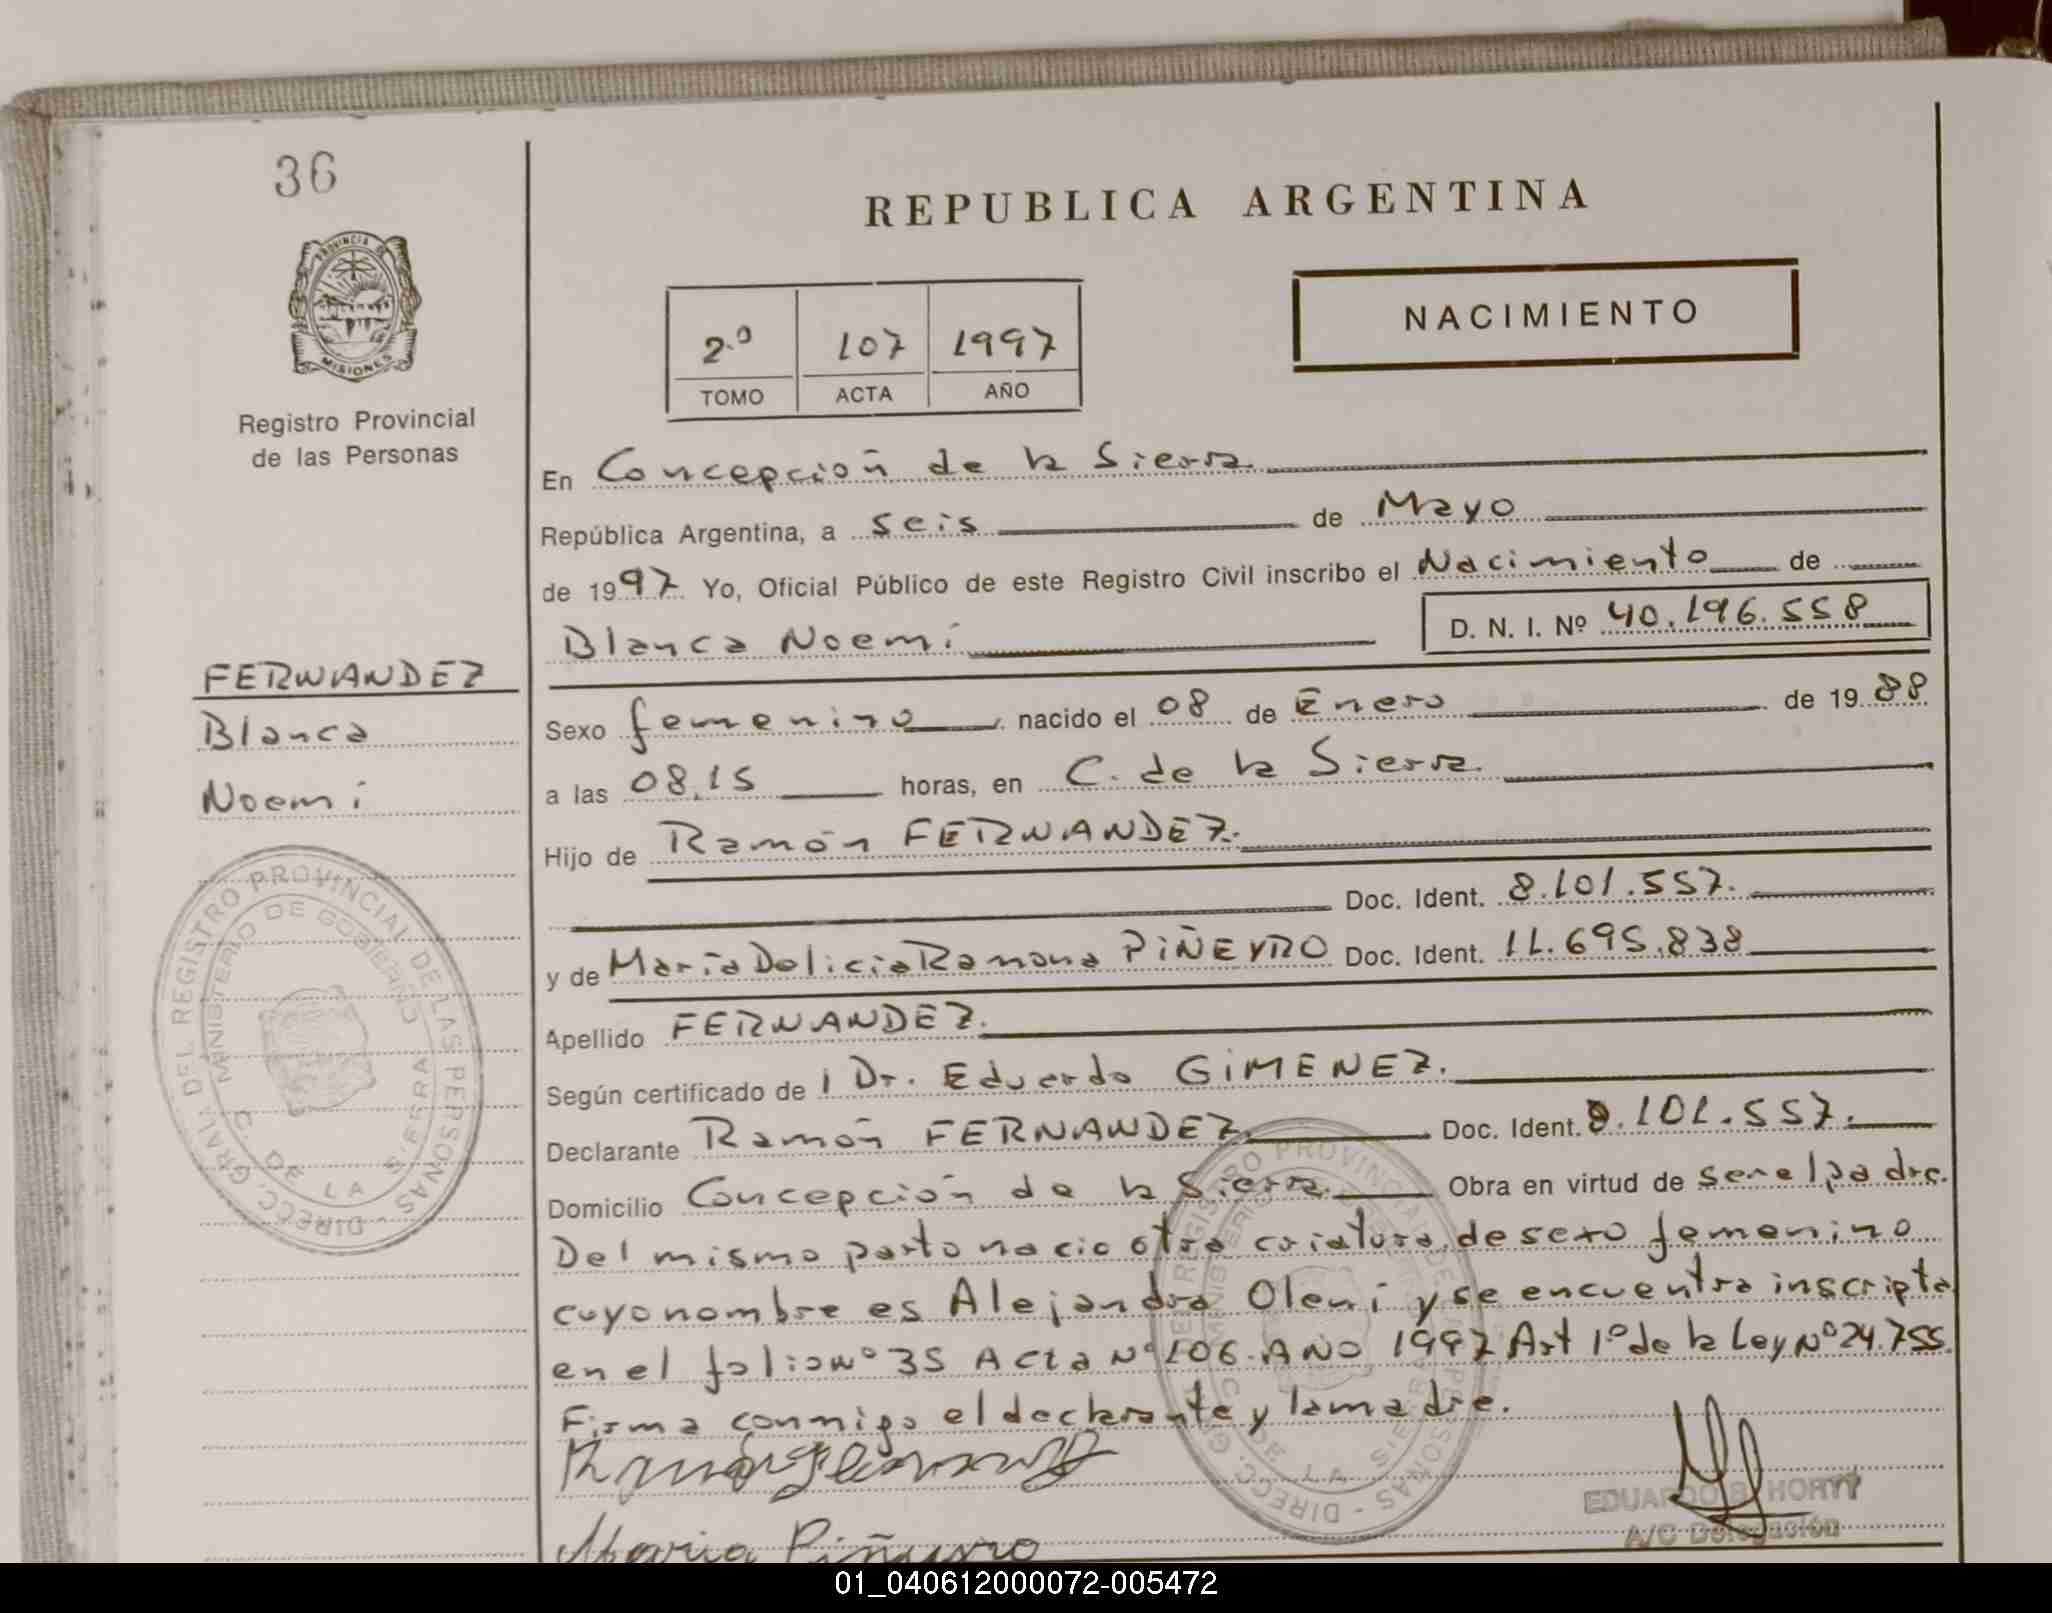 36
REPUBLICA ARGENTINA
PROVINCIA DE
MISIONES
2.º 107 1997
TOMO ACTA AÑO
NACIMIENTO
Registro Provincial
de las Personas
En Concepción de la Sierra
República Argentina, a seis de Mayo
de 1997 Yo, Oficial Público de este Registro Civil inscribo el Nacimiento de
Blanca Noemi D. N. I. Nº 40.196.558
FERNANDEZ
Blanca
Noemi
Sexo femenino nacido el 08 de Enero de 1988
a las 08,15 horas, en C. de la Sierra.
Hijo de Ramón FERNANDEZ.
Doc. Ident. 8.101.557.
y de Maria Dolicia Ramona PIÑEYRO Doc. Ident. 11.695.838
Apellido FERNANDEZ.
Según certificado de Dr. Eduardo GIMENEZ.
Declarante Ramón FERNANDEZ Doc. Ident. 8.101.557.
Domicilio Concepción de la Sierra. Obra en virtud de ser el padre.
Del mismo parto nacio otra criatura de sexo femenino
cuyo nombre es Alejandra Oleni y se encuentra inscripta
en el folio nº 35 Acta Nº 106. AÑO 1997 Art 1º de la Ley Nº 24.755.
Firma conmigo el declarante y la madre.
DIRECC. GRAL. DEL REGISTRO PROVINCIAL DE LAS PERSONAS
MINISTERIO DE GOBIERNO
C. DE LA SIERRA
Maria Piñeyro
EDUARDO R. HORTT
A/C Delegación
01_040612000072-005472